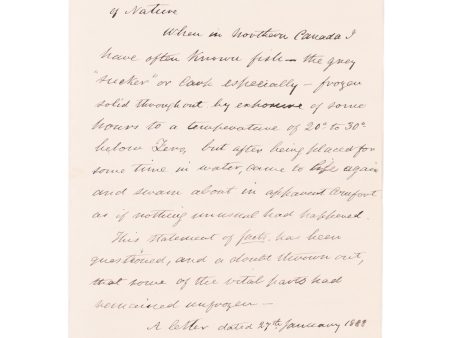 of Nature
When in Northern Canada I
have often known fish — the grey
"sucker" or Carp especially — frozen
solid throughout by exposure of some
hours to a temperature of 20° to 30°
below Zero, but after being placed for
some time in water, came to life again
and swam about in apparent Comfort
as if nothing unusual had happened.
This statement of facts has been
questioned, and a doubt thrown out,
that some of the vital parts had
remained unfrozen —
A letter dated 27th January 1888